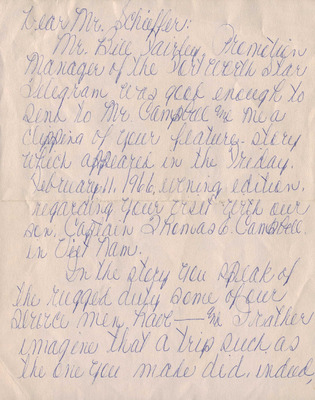 Dear Mr. Schieffer:
Mr. Bill Fairley, Promotion
Manager of the Fort Worth Star
Telegram was good enough to
send to Mr. Campbell and me a
clipping of your feature-story
which appeared in the Friday,
February 11, 1966, evening edition,
regarding your visit with our
son, Captain Thomas E. Campbell
in Viet Nam.
In the story you speak of
the rugged duty some of our
service men have — and I rather
imagine that a trip such as
the one you made did, indeed,